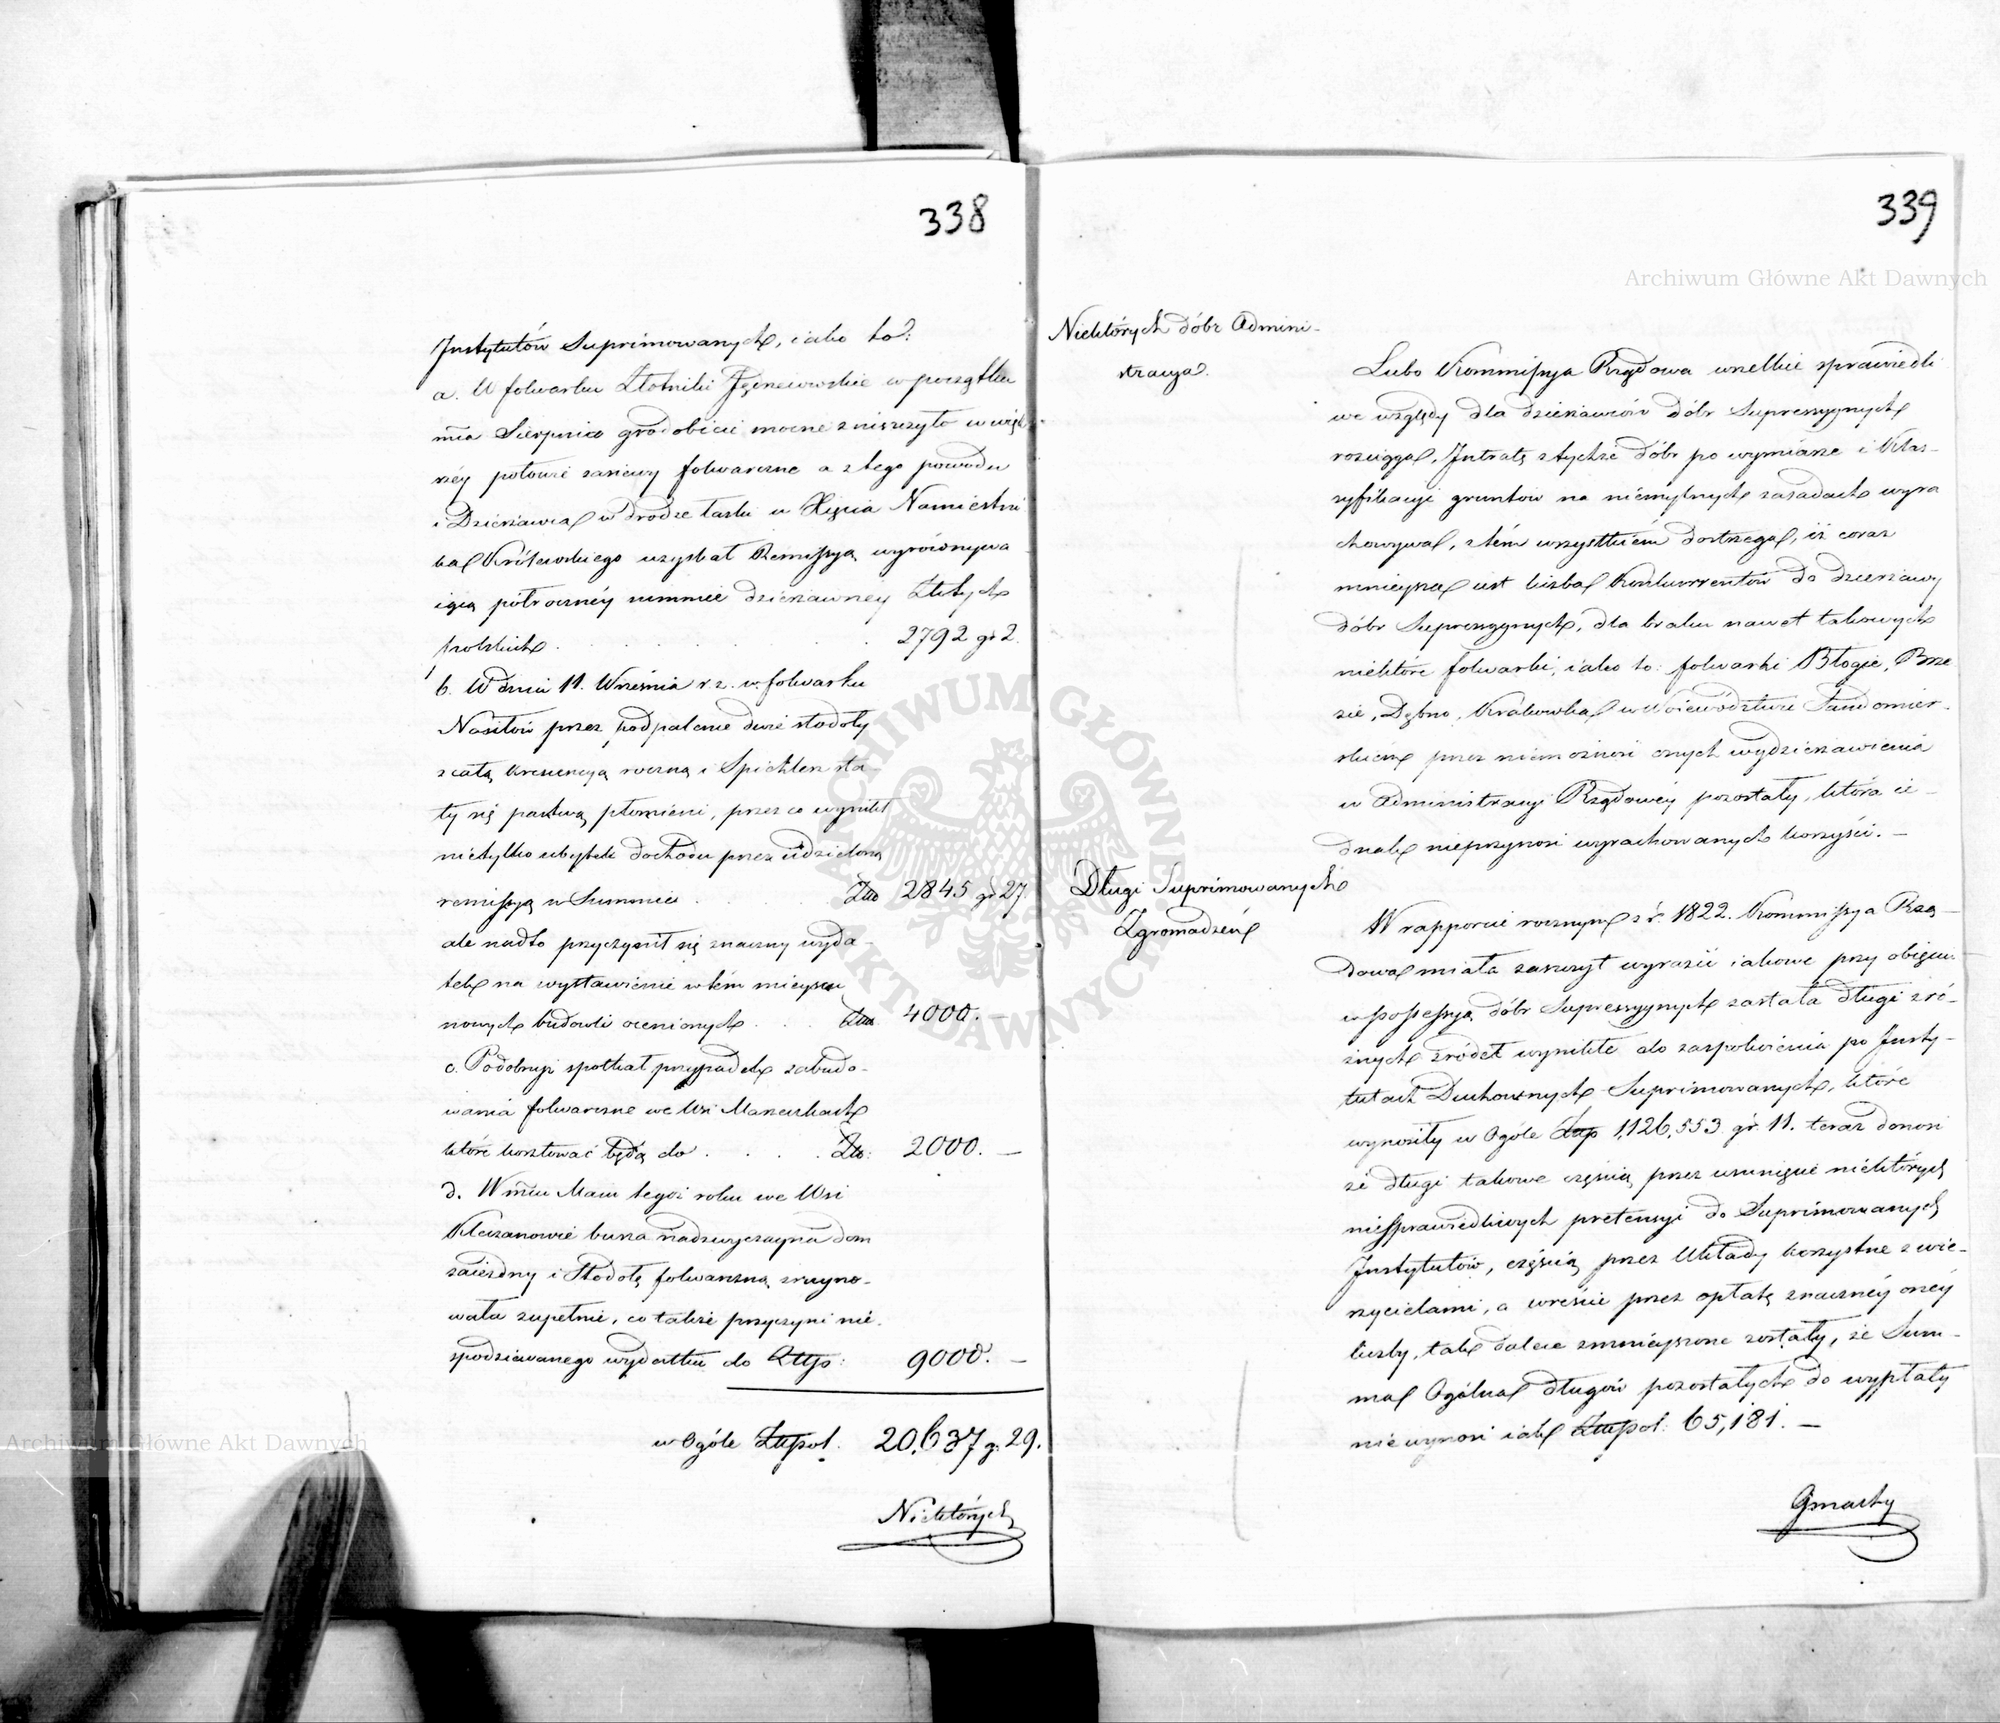 338
Instytutów Suprimowanych, iako to:
a. W folwarku Złotniki w początku
mca Sierpnia gradobicie mocne zniszczyło w więk-
széy połowie zasiewy folwarczne a z tego powodu
i Dzierżawca w drodze łaski u Xięcia Namiestni
ka Królewskiego uzyskał Remissyą wyrównywa
iącą półrocznéy summie dzierżawney Złotych
polskich . . . . 2792 gr 2.
b. W dniu 11. Września r. z. w folwarku
Nasiłów przez podpalenie dwie stodoły
z całą krescencyą roczną i Spichlerz sta-
ły się pastwą płomieni, przez co wynikł
nietylko ubytek dochodu przez udzieloną
remissyą w Summie . . . Złp 2845 gr 27.
ale nadto przyczynił się znaczny wyda-
tek na wystawienie w tém mieyscu
nowych budowli ocenionych . . . Złp 4000. —
c. Podobny spotkał przypadek zabudo-
wania folwarczne we Wsi
które kosztować będą do . . . . Złp: 2000. —
d. W mcu Maiu tegoż roku we Wsi
Kleczanowie burza nadzwyczayna dom
zaiezdny i Stodołę folwarczną zruyno-
wała zupełnie, co także przyczyni nie-
spodziewanego wydatku do Złtp: 9000. —
w Ogóle Złtpol. 20,637 g. 29.
Niektórych
339
Archiwum Główne Akt Dawnych
Niektórych dóbr Admini-
stracya.
Lubo Kommissya Rządowa wszelkie sprawiedli
we względy dla dzierżawców dóbr Supressyynych
rozciąga, Intratę z tychże dóbr po wymiarze i Klas-
syfikacyi gruntów na niemylnych zasadach wyra
chowywa, z tém wszystkiém dostrzega, iż coraz
mnieysza iest liczba Konkurrentów do dzierżawy
dóbr Supressyynych, dla braku nawet takowych
niektóre folwarki, iako to: folwarki Błogie, Brze
zie, Dębno, Krakówka w Woiewództwie Sandomier-
skiem przez niemożność onych wydzierżawienia
w Administracyi Rządowéy pozostały, która ie-
dnak nieprzynosi wyrachowanych korzyści. —
Długi Suprimowanych
Zgromadzeń
W rapporcie rocznym z r. 1822. Kommissya Rzą-
dowa miała zaszczyt wyrazić iakowe przy obięciu
w possessyą dóbr Supressyynych zastała długi z ró-
żnych źródeł wynikłe do zaspokoienia po Insty-
tutach Duchownych Suprimowanych, które
wynosiły w Ogóle Złtp 1,126,553 gr. 11. teraz donosi
że długi takowe częścią przez usunięcie niektórych
niesprawiedliwych pretensyi do Suprimowanych
Instytutów, częścią przez Układy korzystne z wie-
rzycielami, a wreście przez opłatę znacznéy onéy
liczby, tak dalece zmnieyszone zostały, że Sum-
ma Ogólna długów pozostałych do wypłaty
nie wynosi iak Złtpol: 65,181. —
Gmachy
Archiwum Główne Akt Dawnych
ARCHIWUM GŁÓWNE AKT DAWNYCH